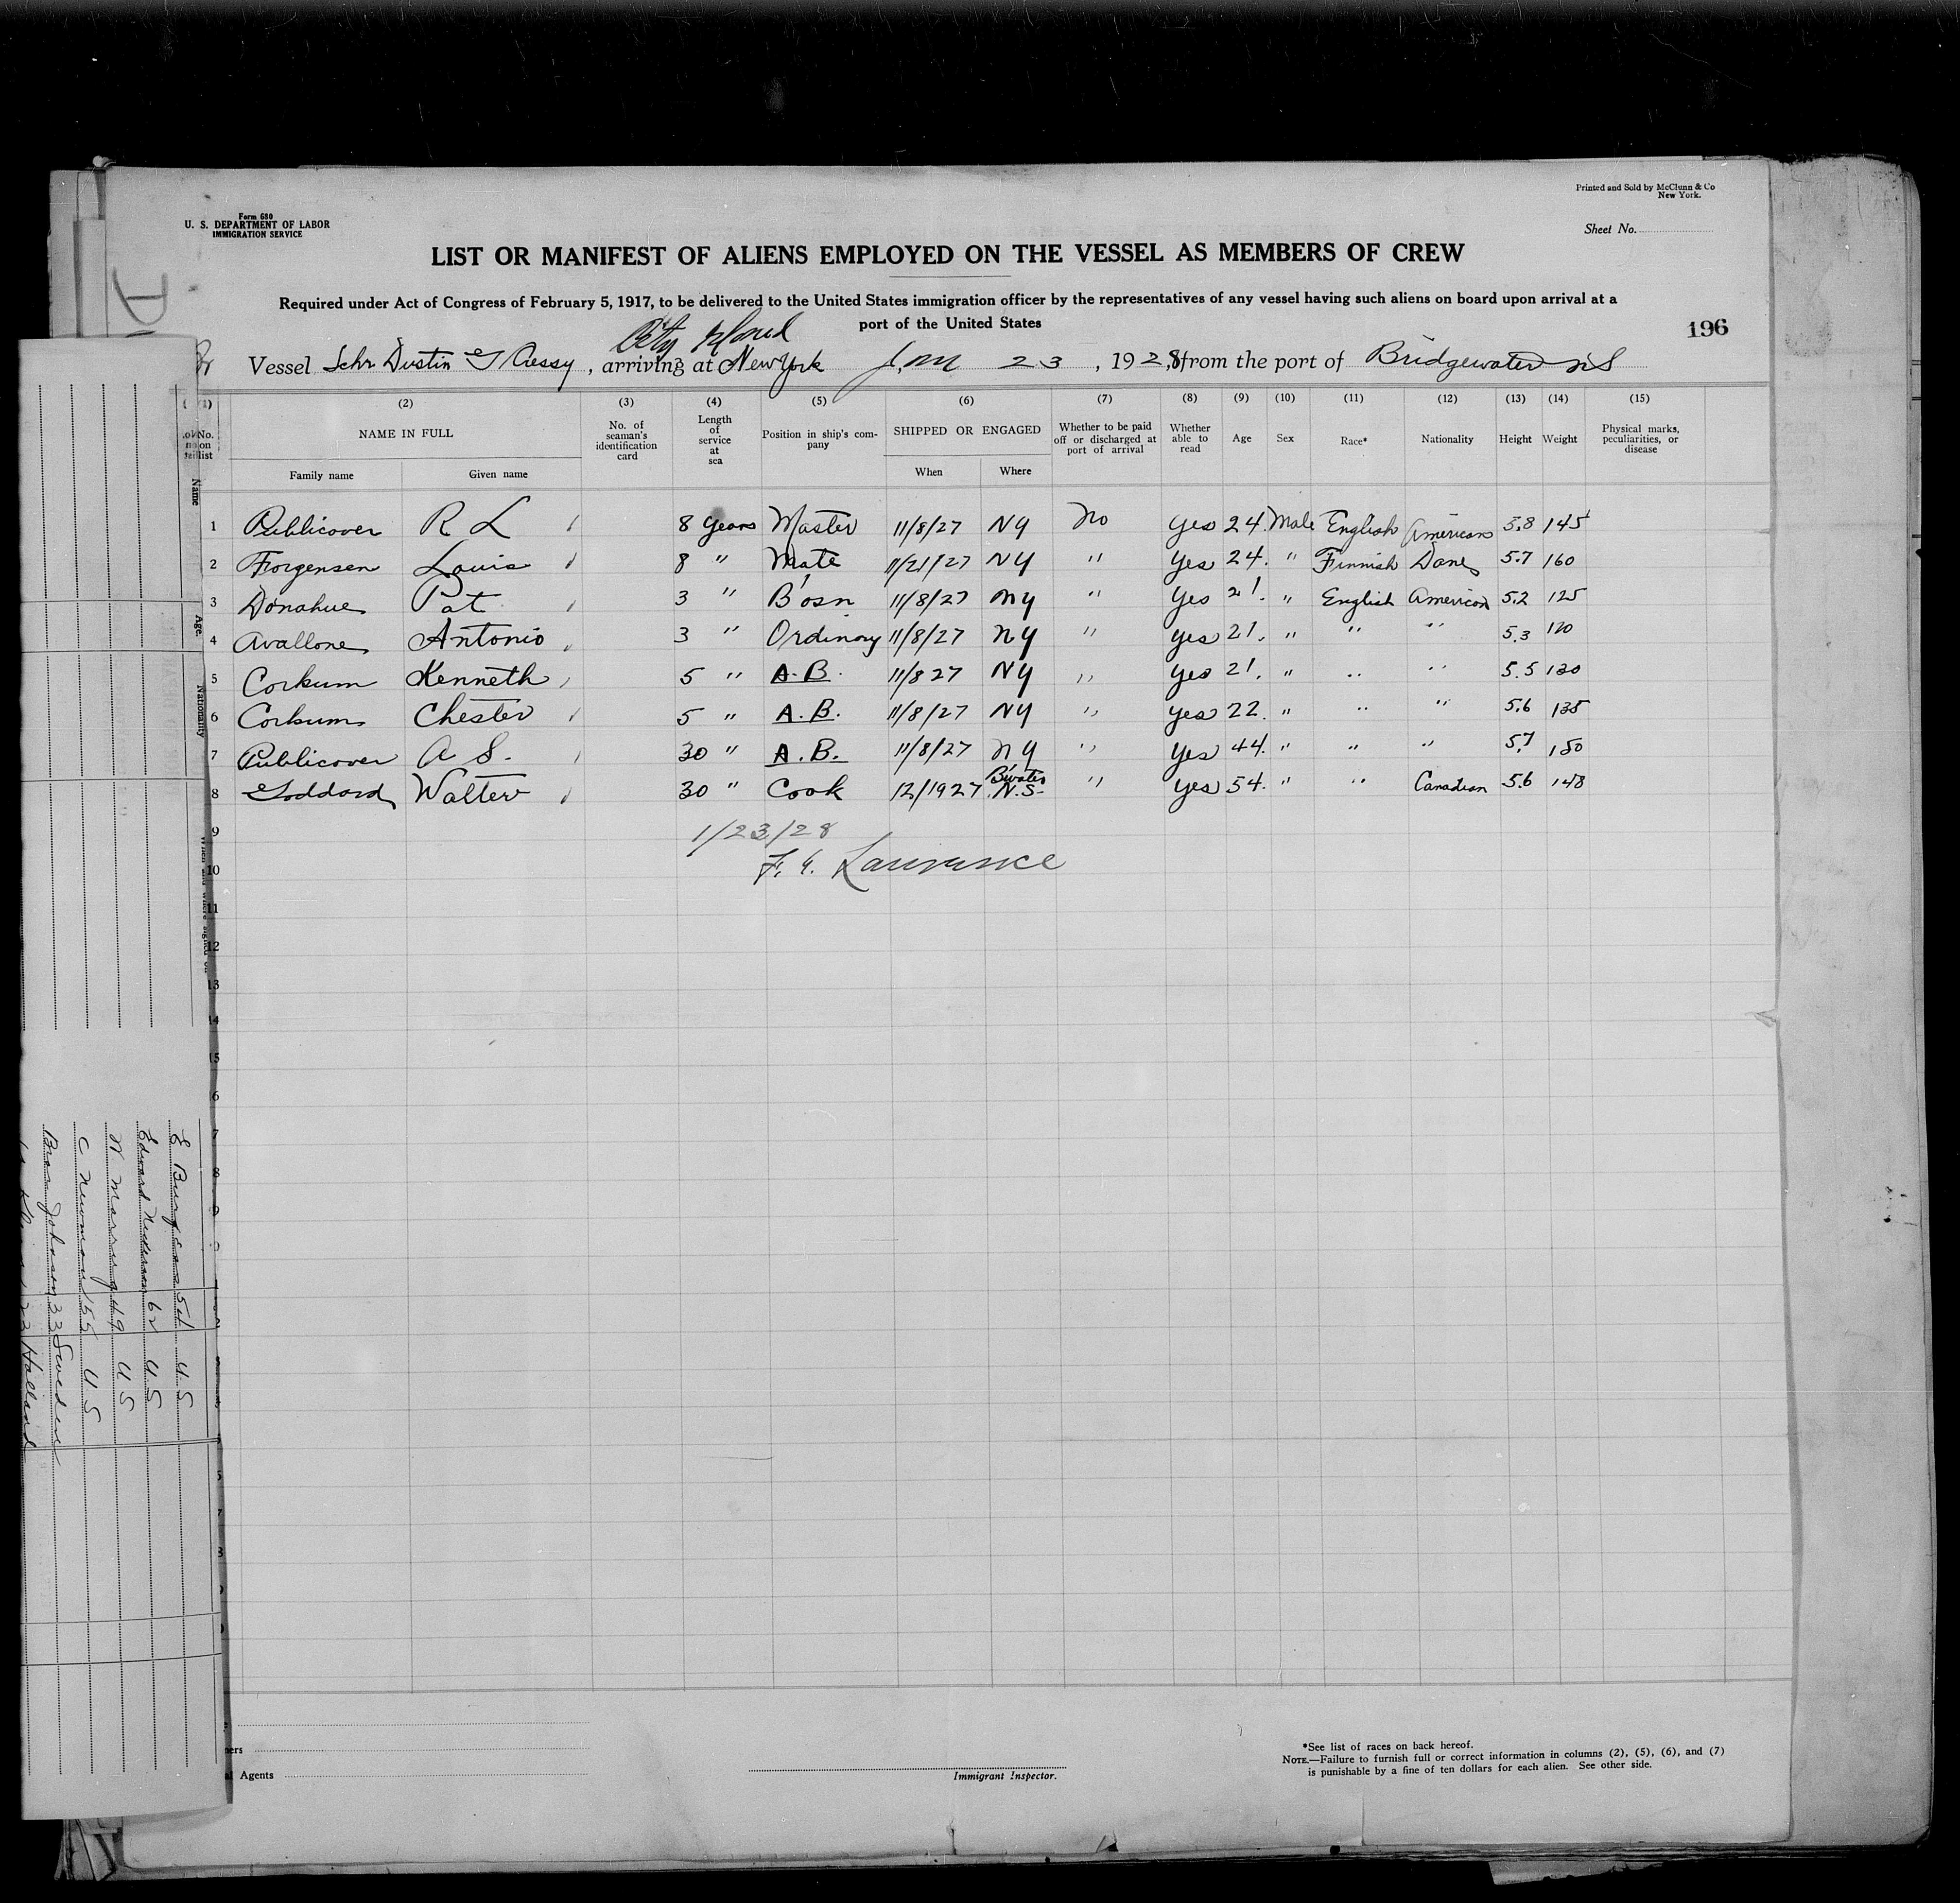 Printed and Sold by McClunn & Co
New York.
Form 680
U. S. DEPARTMENT OF LABOR
IMMIGRATION SERVICE
Sheet No.
LIST OR MANIFEST OF ALIENS EMPLOYED ON THE VESSEL AS MEMBERS OF CREW
Required under Act of Congress of February 5, 1917, to be delivered to the United States immigration officer by the representatives of any vessel having such aliens on board upon arrival at a
port of the United States
196
City Island
Vessel Schr Dustin G Cressy, arriving at New York Jan 23, 1928, from the port of Bridgewater NS
(1) (2) (3) (4) (5) (6) (7) (8) (9) (10) (11) (12) (13) (14) (15)
No. on list NAME IN FULL No. of seaman's identification card Length of service at sea Position in ship's company SHIPPED OR ENGAGED Whether to be paid off or discharged at port of arrival Whether able to read Age Sex Race* Nationality Height Weight Physical marks, peculiarities, or disease
Family name Given name When Where
1 Publicover R L 8 years Master 11/8/27 NY no yes 24. Male English American 5.8 145
2 Forgensen Louis 8 " Mate 11/21/27 NY " yes 24. " Finnish Dane 5.7 160
3 Donahue Pat 3 " B'osn 11/8/27 NY " yes 21. " English American 5.2 125
4 Avallone Antonio 3 " Ordinary 11/8/27 NY " yes 21. " " " 5.3 120
5 Corkum Kenneth 5 " A.B. 11/8 27 NY " yes 21. " " " 5.5 130
6 Corkum Chester 5 " A.B. 11/8/27 NY " yes 22. " " " 5.6 135
7 Publicover A S. 30 " A.B. 11/8/27 NY " yes 44. " " " 5.7 150
8 Goddard Walter 30 " Cook 12/19 27 B'water N.S. " yes 54. " " Canadian 5.6 148
9
1/23/28
10
F. G. Lawrence
11
12
13
14
15
Name
Age.
Nationality
E Burgess 54 U S
Edward Nickerson 62 U S
W Morris 49 U S
C Newman 55 U S
Johnson 33 Sweden
Holland
Agents
Immigrant Inspector.
*See list of races on back hereof.
NOTE.—Failure to furnish full or correct information in columns (2), (5), (6), and (7)
is punishable by a fine of ten dollars for each alien. See other side.